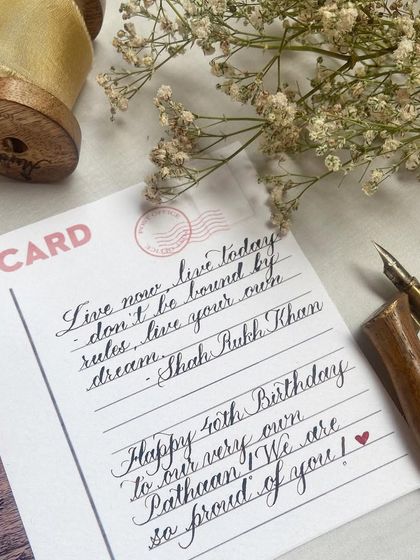 CARD
POST OFFICE
POST OFFICE
Live now, live today
- don't be bound by
rules, live your own
dream.
- Shah Rukh Khan
Happy 40th Birthday
to our very own
Pathaan! We are
so proud of you!